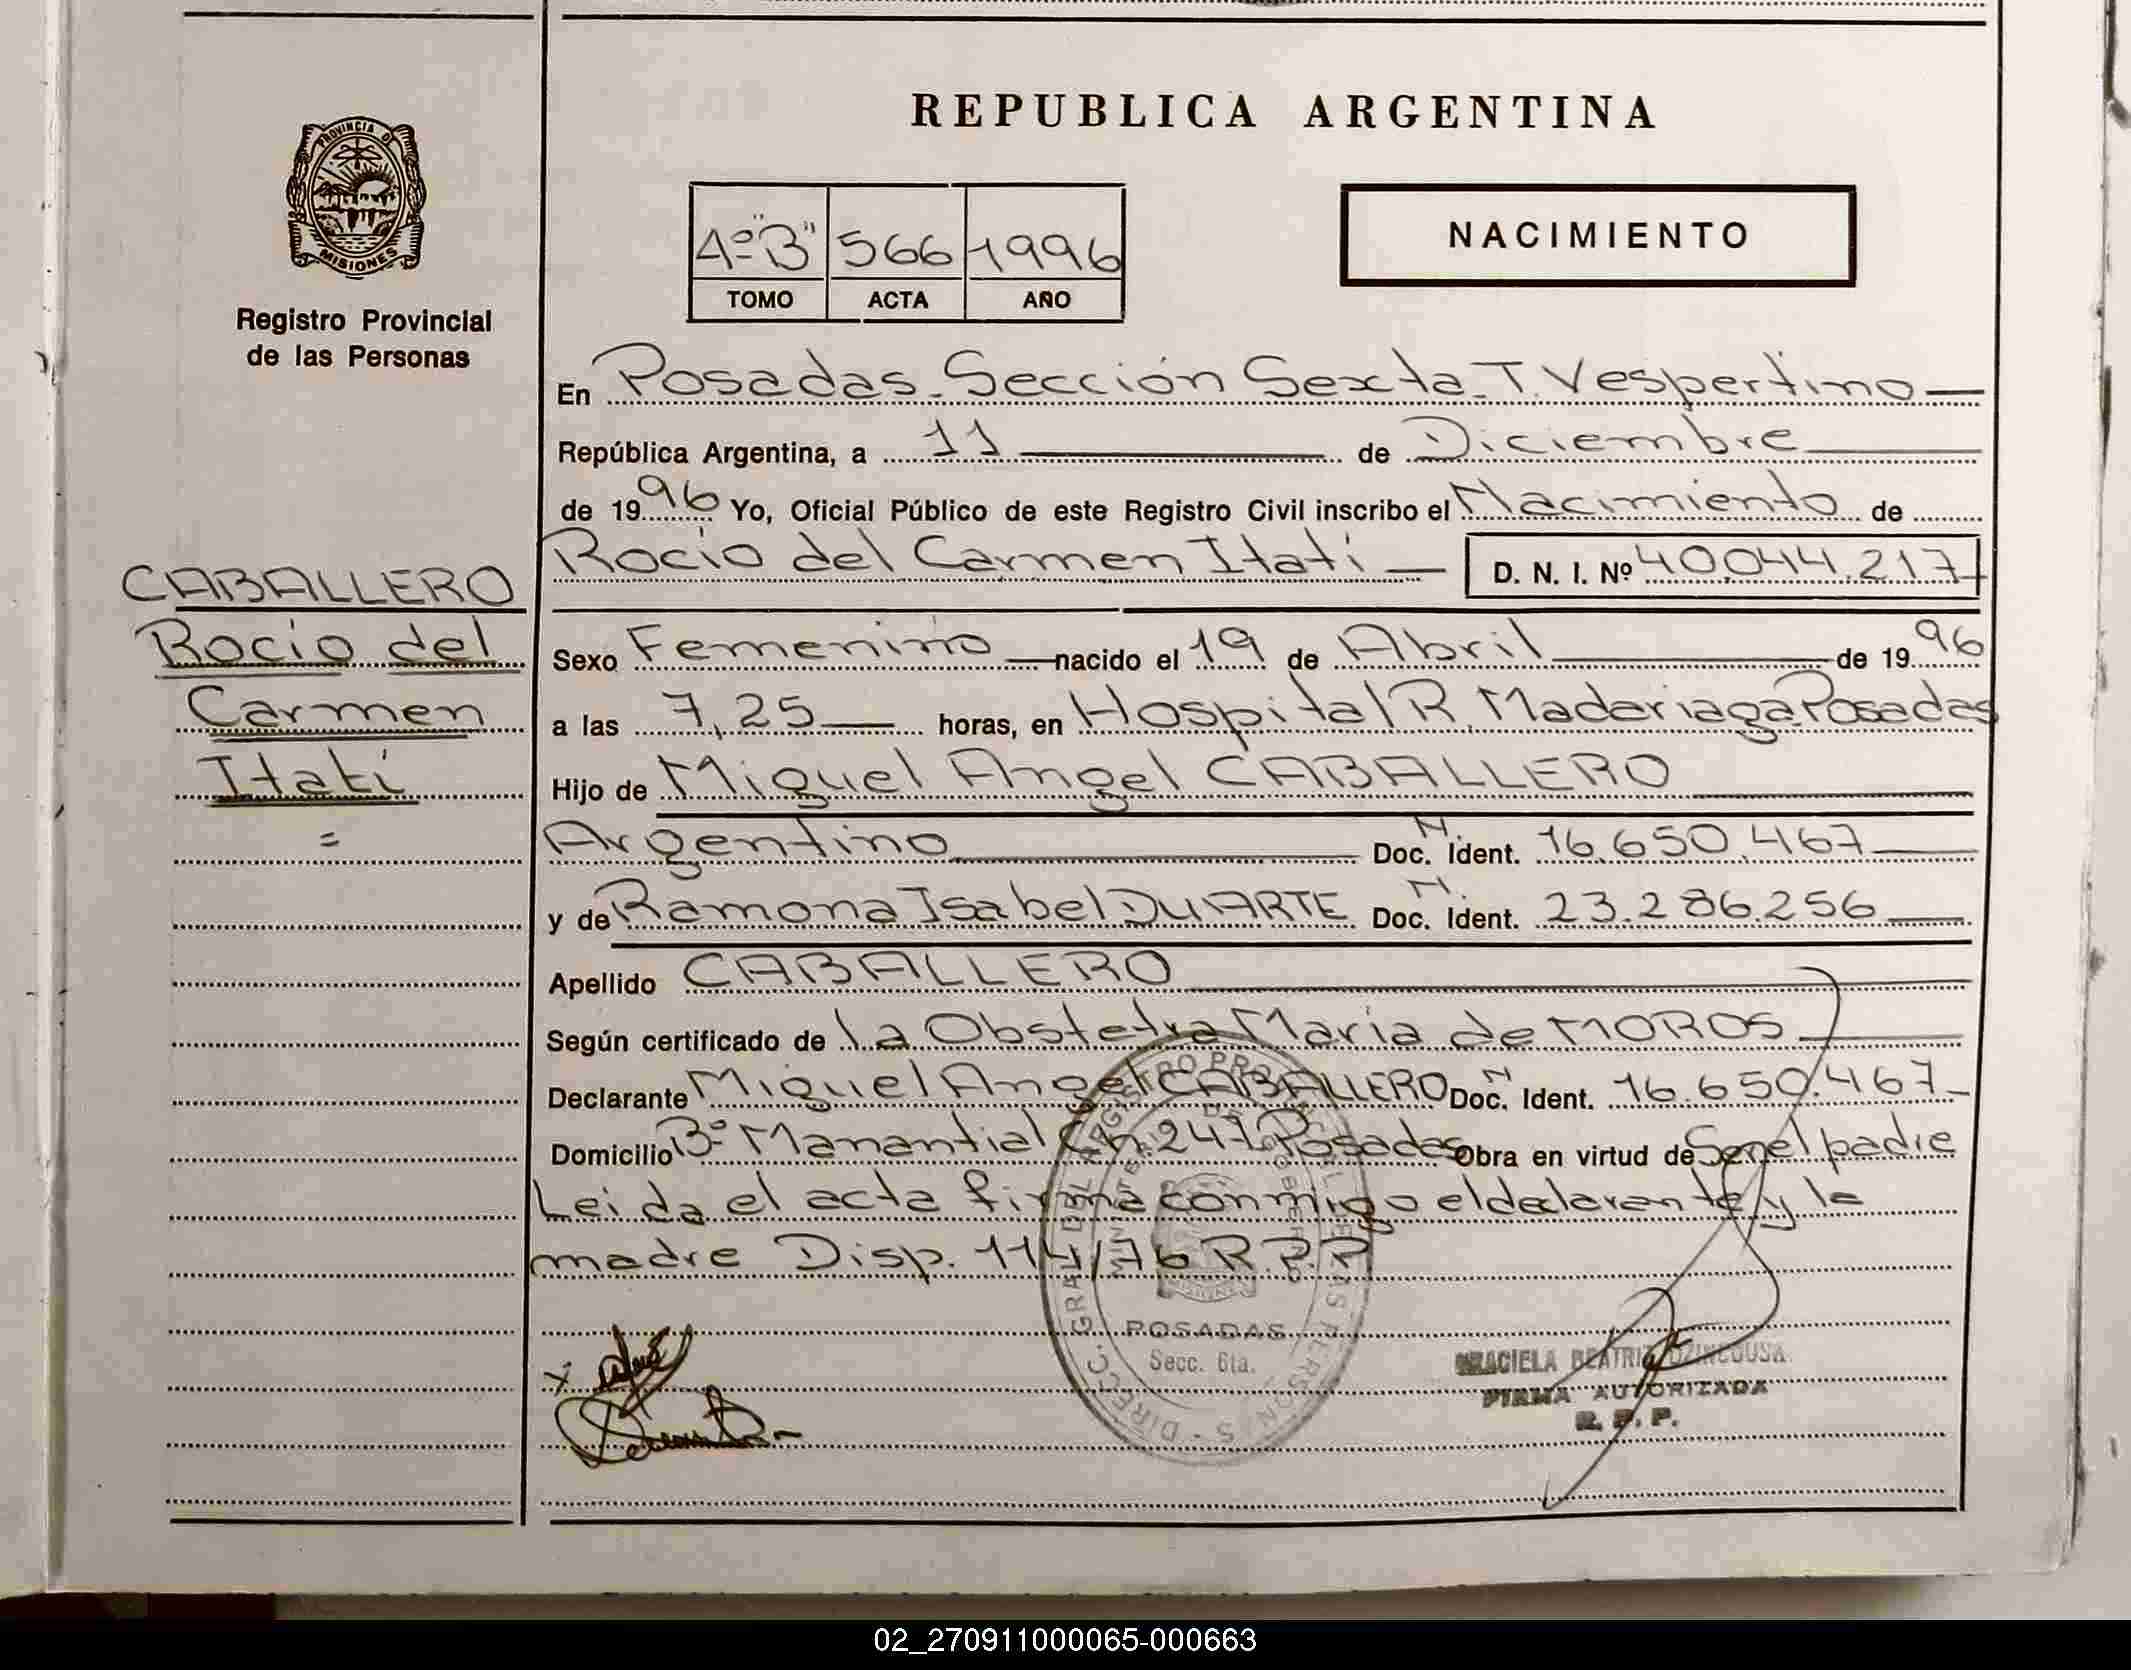 REPUBLICA ARGENTINA
PROVINCIA DE
MISIONES
Registro Provincial
de las Personas
4º "B" 566 1996
TOMO ACTA AÑO
NACIMIENTO
En Posadas. Sección Sexta. T. Vespertino
República Argentina, a 11 de Diciembre
de 1996 Yo, Oficial Público de este Registro Civil inscribo el Nacimiento de
Rocio del Carmen Itatí D. N. I. Nº 40.044.217
CABALLERO
Rocio del
Carmen
Itatí
=
Sexo Femenino nacido el 19 de Abril de 1996
a las 7,25 horas, en Hospital R. Madariaga Posadas
Hijo de Miguel Angel CABALLERO
Argentino Doc. N. Ident. 16.650.467
y de Ramona Isabel DUARTE Doc. N. Ident. 23.286.256
Apellido CABALLERO
Según certificado de la Obstetra Maria de MOROS
Declarante Miguel Angel CABALLERO Doc. N Ident. 16.650.467
Domicilio Bº Manantial Ch. 247 Posadas Obra en virtud de Ser el padre
Leida el acta firma conmigo el declarante y la
madre Disp. 114/76 R.P.P
POSADAS
Secc. 6ta.
GRACIELA BEATRIZ
FIRMA AUTORIZADA
R. P. P.
02_270911000065-000663